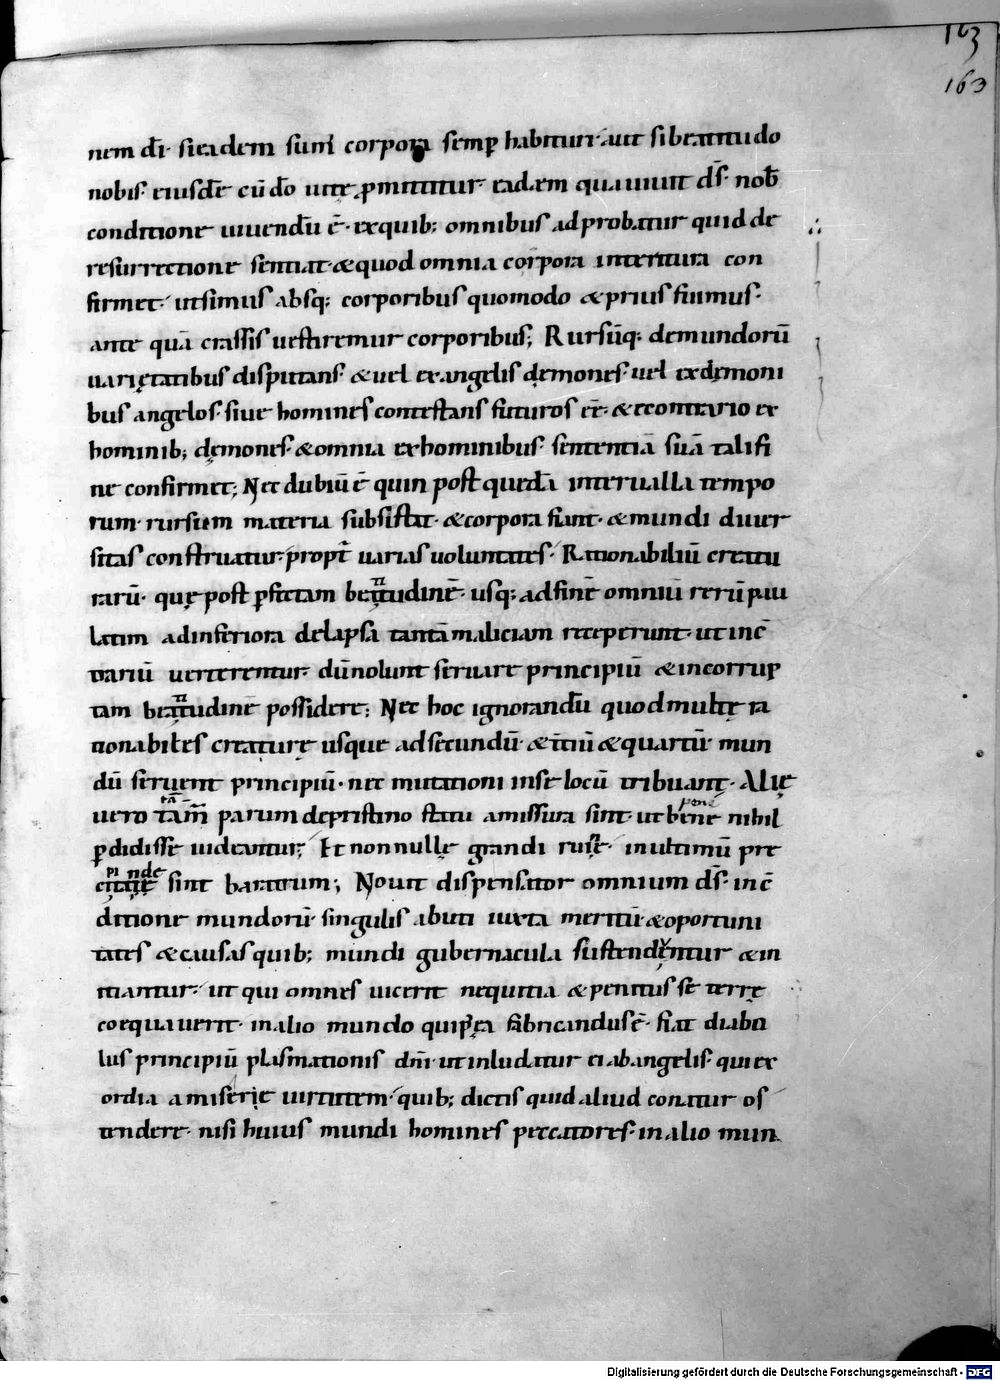 163
163
nem dī· si eadem sum̄ corpora semp̄ habituri· aut si beatitudo
nobis· eiusdē cū dō uitę ꝓmittitur· eadem qua uiuit d̄s· nob̄
conditione uiuendū ē· ex quib; omnibus adprobatur quid de
resurrectione sentiat· & quod omnia corpora interitura con
firmet· ut simus absq; corporibus quomodo & prius fuimus·
ante quā crassis uestiremur corporibus; Rursūq; de mundorū
uarietatibus disputans· & uel ex angelis demones· uel ex demoni
bus angelos· siue homines contestans futuros eē· & e contrario ex
hominib; demones· & omnia ex hominibus· sententiā suā tali fi
ne confirmet; Nec dubiū ē quin post quedā interualla tempo
rum· rursum materia subsistat· & corpora fiant· & mundi diuer
sitas construatur· propt̄ uarias uoluntates· Rationabiliū creatu
rarū· quę post ꝑfectam beatitudinē· usq; ad finē omniū rerū pau
latim ad inferiora delapsa tantā maliciam receperunt· ut in c̄
trariū uerterentur· dū nolunt seruare principiū & incorrup
tam beatitudinē possidere; Nec hoc ignorandū quod multę ra
tionabiles creaturę usque ad secundū· & t̄ciū & quartū mun
dū seruent principiū· nec mutationi in se locū tribuant· Alię
uero tam̄ parum de pristino statu amissura sint· ut bene nihil
pene
ꝑdidisse uideantur; Et nonnullę grandi ruinę· in ultimū pre
cipitandę sint baratrum; Nouit dispensator omnium d̄s· in c̄
ditione mundorū· singulis abuti iuxta meritū & oportuni
tates & causas quib; mundi gubernacula sustendentur & in
itiantur· ut qui omnes uicerit nequitia & penitus se terrę
coequauerit· in alio mundo qui postea fabricandus ē· fiat diabo
lus principiū plasmationis dn̄i· ut inludatur ei ab angelis· qui ex
ordia amiserit uirtutem· quib; dictis quid aliud conatur os
tendere· nisi huius mundi homines peccatores· in alio mun
Digitalisierung gefördert durch die Deutsche Forschungsgemeinschaft - DFG